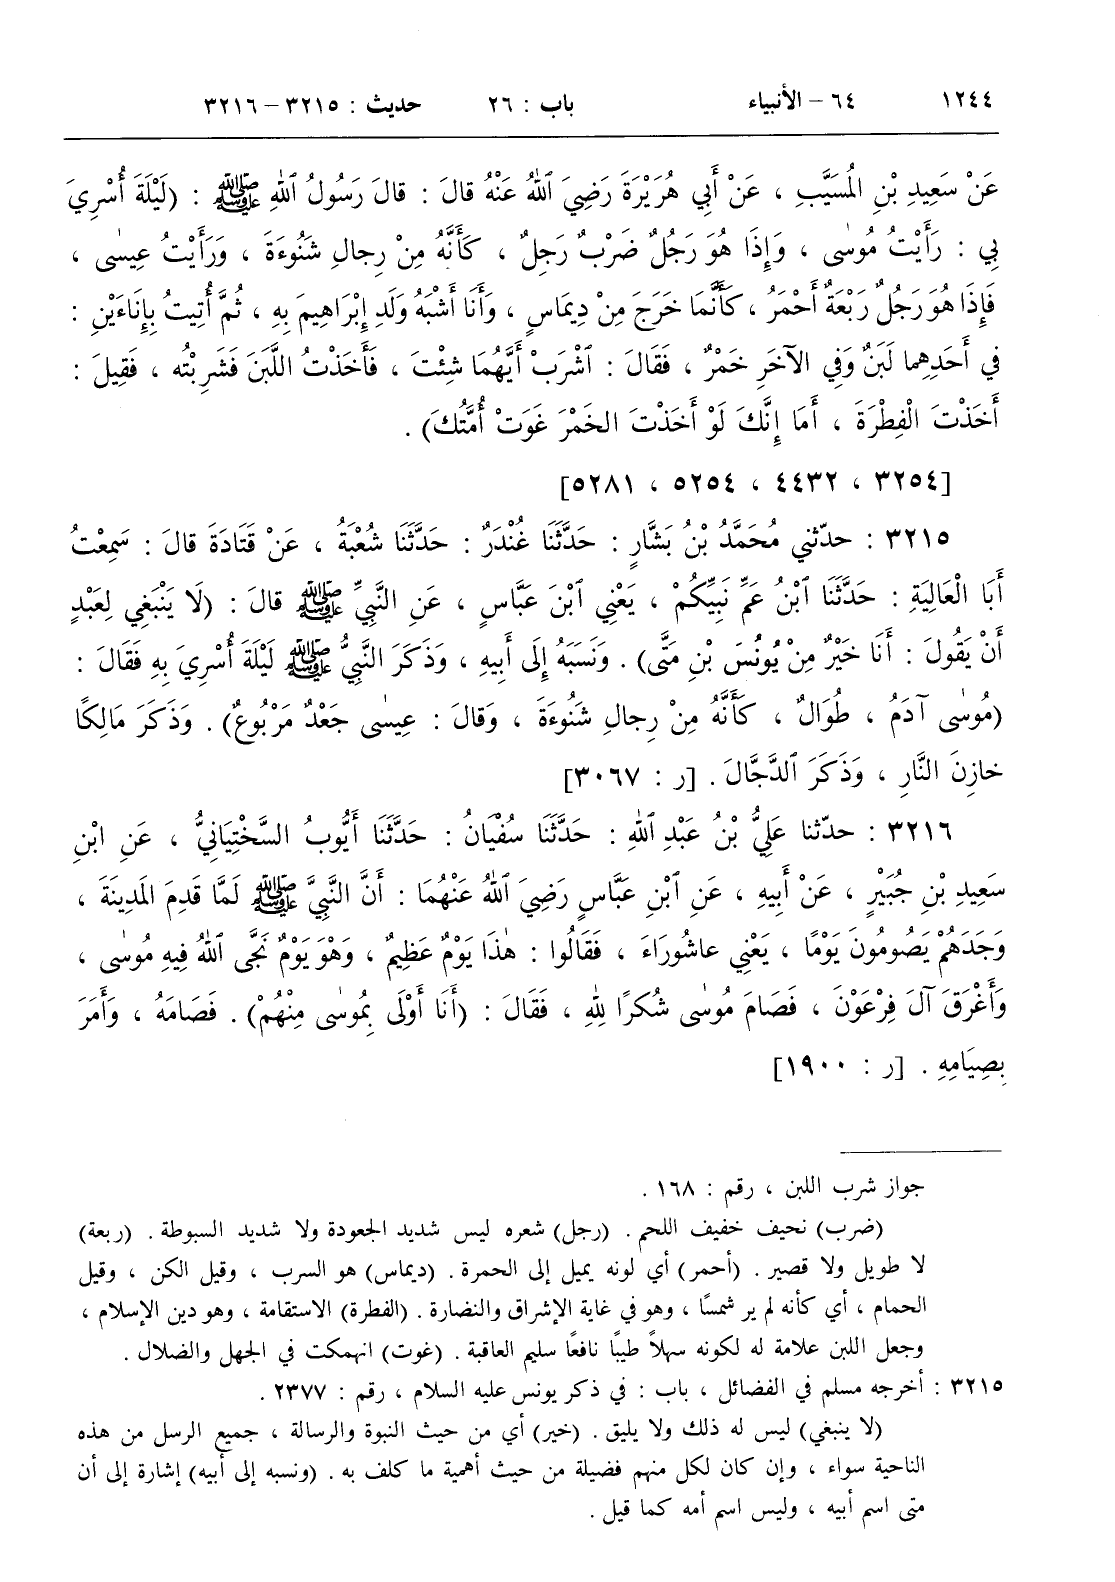 ١٢٤٤ ٦٤ – الأنبياء باب : ٢٦ حديث : ٣٢١٥ – ٣٢١٦
عَنْ سَعِيدِ بْنِ المُسَيَّبِ ، عَنْ أَبِي هُرَيْرَةَ رَضِيَ ٱللهُ عَنْهُ قالَ : قالَ رَسُولُ ٱللهِ ﷺ : (لَيْلَةَ أُسْرِيَ
بِي : رَأَيْتُ مُوسٰى ، وَإِذَا هُوَ رَجُلٌ ضَرْبٌ رَجِلٌ ، كَأَنَّهُ مِنْ رِجالِ شَنُوءَةَ ، وَرَأَيْتُ عِيسٰى ،
فَإِذَا هُوَ رَجُلٌ رَبْعَةٌ أَحْمَرُ ، كَأَنَّمَا خَرَجَ مِنْ دِيمَاسٍ ، وَأَنَا أَشْبَهُ وَلَدِ إِبْرَاهِيمَ بِهِ ، ثُمَّ أُتِيتُ بِإِنَاءَيْنِ :
في أَحَدِهِما لَبَنٌ وَفي الآخَرِ خَمْرٌ ، فَقَالَ : ٱشْرَبْ أَيَّهُمَا شِئْتَ ، فَأَخَذْتُ اللَّبَنَ فَشَرِبْتُه ، فَقِيلَ :
أَخَذْتَ الْفِطْرَةَ ، أَمَا إِنَّكَ لَوْ أَخَذْتَ الخَمْرَ غَوَتْ أُمَّتُكَ) .
[٣٢٥٤ ، ٤٤٣٢ ، ٥٢٥٤ ، ٥٢٨١]
٣٢١٥ : حدّثني مُحَمَّدُ بْنُ بَشَّارٍ : حَدَّثَنَا غُنْدَرٌ : حَدَّثَنَا شُعْبَةُ ، عَنْ قَتَادَةَ قالَ : سَمِعْتُ
أَبَا الْعَالِيَةِ : حَدَّثَنَا ٱبْنُ عَمِّ نَبِيِّكُمْ ، يَعْنِي ٱبْنَ عَبَّاسٍ ، عَنِ النَّبِيِّ ﷺ قالَ : (لَا يَنْبَغِي لِعَبْدٍ
أَنْ يَقُولَ : أَنَا خَيْرٌ مِنْ يُونُسَ بْنِ مَتَّى) . وَنَسَبَهُ إِلَى أَبِيهِ ، وَذَكَرَ النَّبِيُّ ﷺ لَيْلَةَ أُسْرِيَ بِهِ فَقَالَ :
(مُوسٰى آدَمُ ، طُوَالٌ ، كَأَنَّهُ مِنْ رِجالِ شَنُوءَةَ ، وَقالَ : عِيسٰى جَعْدٌ مَرْبُوعٌ) . وَذَكَرَ مَالِكًا
خازِنَ النَّارِ ، وَذَكَرَ ٱلدَّجَّالَ . [ر : ٣٠٦٧]
٣٢١٦ : حدّثنا عَلِيُّ بْنُ عَبْدِ ٱللهِ : حَدَّثَنَا سُفْيَانُ : حَدَّثَنَا أَيُّوبُ السَّخْتِيَانِيُّ ، عَنِ ابْنِ
سَعِيدِ بْنِ جُبَيْرٍ ، عَنْ أَبِيهِ ، عَنِ ٱبْنِ عَبَّاسٍ رَضِيَ ٱللهُ عَنْهُمَا : أَنَّ النَّبِيَّ ﷺ لَمَّا قَدِمَ المَدِينَةَ ،
وَجَدَهُمْ يَصُومُونَ يَوْمًا ، يَعْنِي عاشُورَاءَ ، فَقَالُوا : هٰذَا يَوْمٌ عَظِيمٌ ، وَهْوَ يَوْمٌ نَجَّى ٱللهُ فِيهِ مُوسٰى ،
وَأَغْرَقَ آلَ فِرْعَوْنَ ، فَصَامَ مُوسٰى شُكْرًا لِلّٰهِ ، فَقَالَ : (أَنَا أَوْلَى بِمُوسٰى مِنْهُمْ) . فَصَامَهُ ، وَأَمَرَ
بِصِيَامِهِ . [ر : ١٩٠٠]
جواز شرب اللبن ، رقم : ١٦٨ .
(ضرب) نحيف خفيف اللحم . (رجل) شعره ليس شديد الجعودة ولا شديد السبوطة . (ربعة)
لا طويل ولا قصير . (أحمر) أي لونه يميل إلى الحمرة . (ديماس) هو السرب ، وقيل الكن ، وقيل
الحمام ، أي كأنه لم ير شمسًا ، وهو في غاية الإشراق والنضارة . (الفطرة) الاستقامة ، وهو دين الإسلام ،
وجعل اللبن علامة له لكونه سهلاً طيبًا نافعًا سليم العاقبة . (غوت) انهمكت في الجهل والضلال .
٣٢١٥ : أخرجه مسلم في الفضائل ، باب : في ذكر يونس عليه السلام ، رقم : ٢٣٧٧ .
(لا ينبغي) ليس له ذلك ولا يليق . (خير) أي من حيث النبوة والرسالة ، جميع الرسل من هذه
الناحية سواء ، وإن كان لكل منهم فضيلة من حيث أهمية ما كلف به . (ونسبه إلى أبيه) إشارة إلى أن
متى اسم أبيه ، وليس اسم أمه كما قيل .